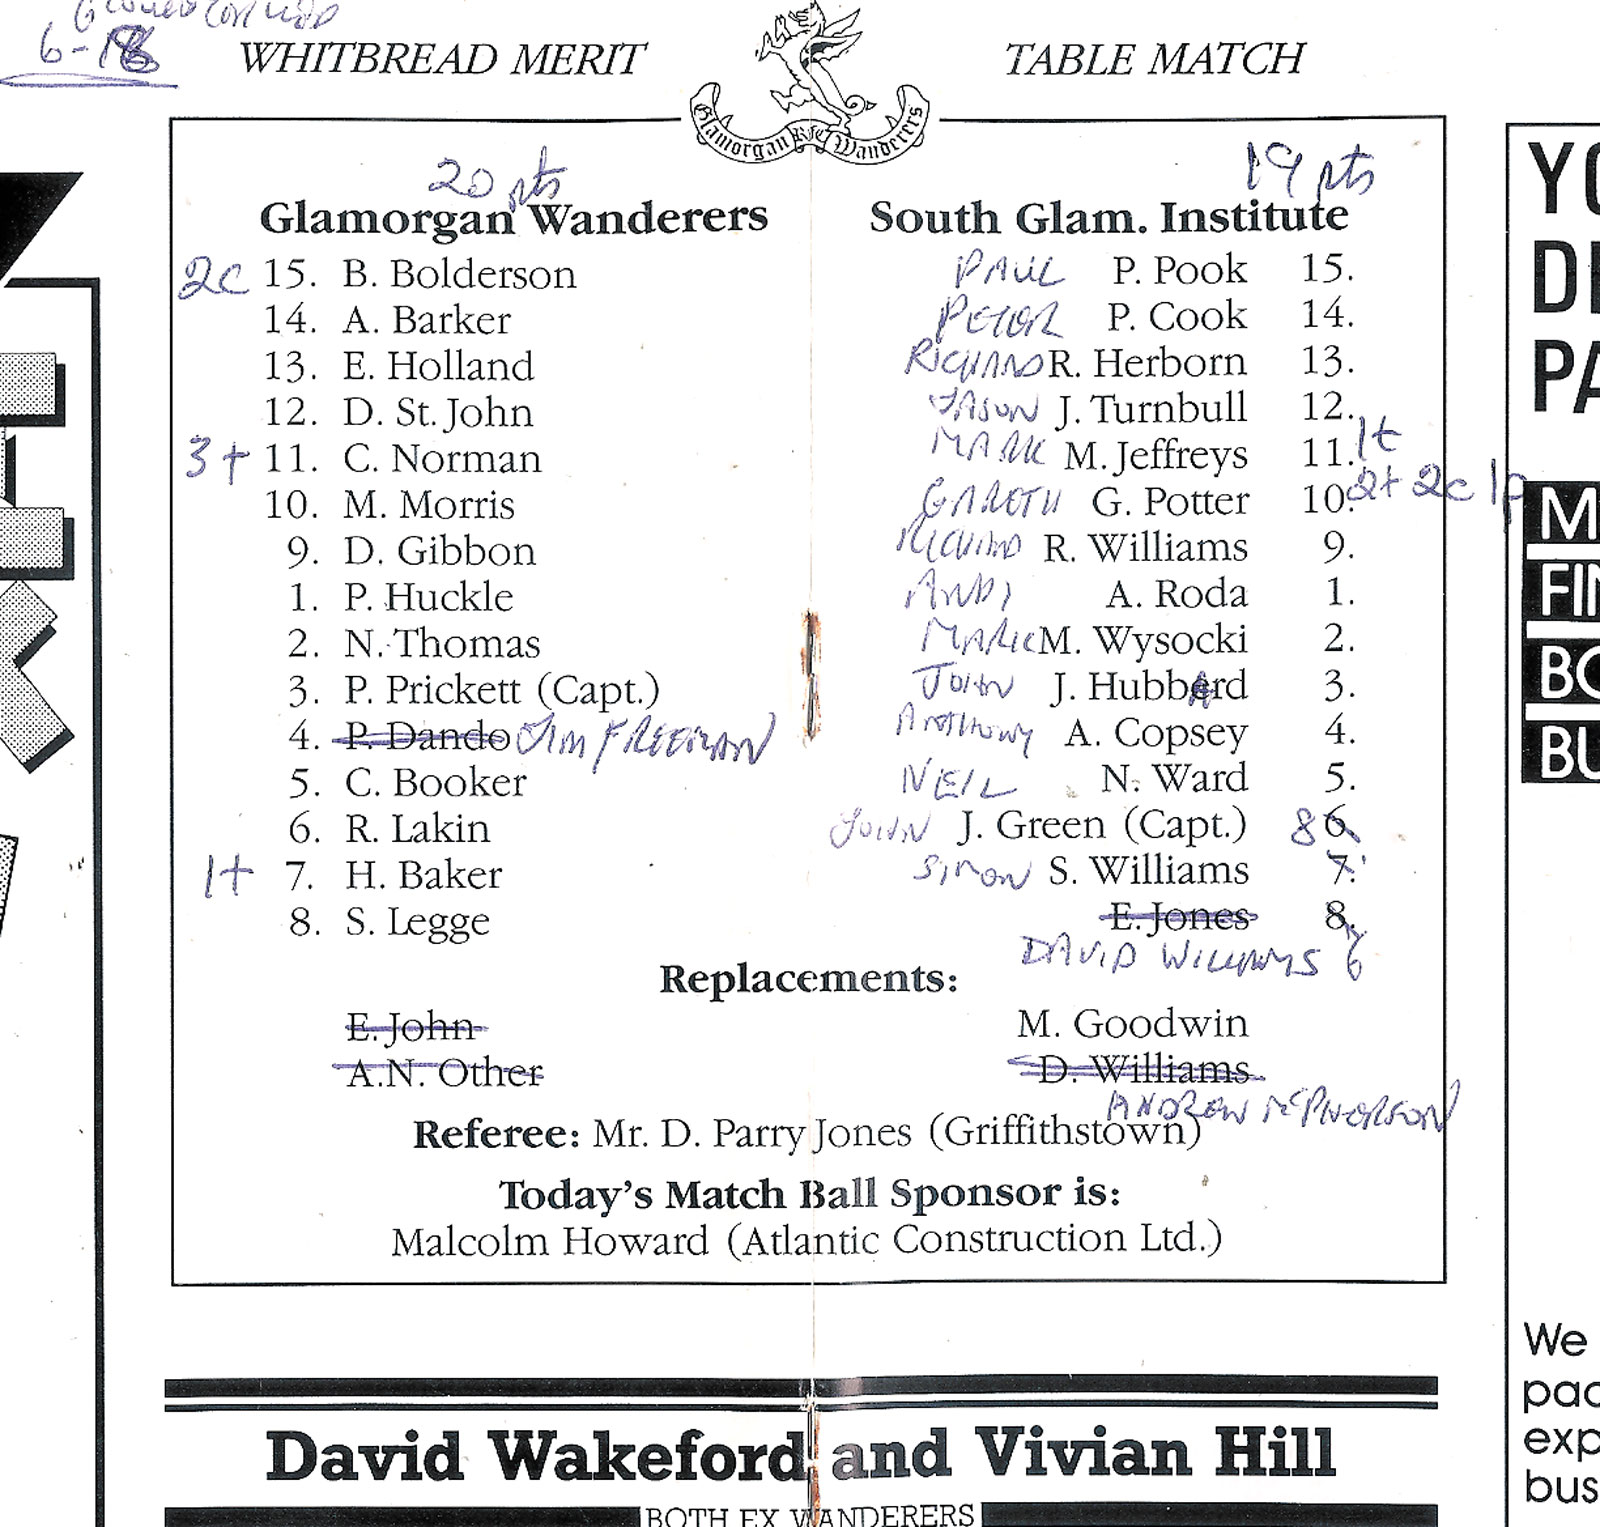 6-18
WHITBREAD MERIT TABLE MATCH
Glamorgan RFC Wanderers
20 pts 19 pts
Glamorgan Wanderers South Glam. Institute
2c 15. B. Bolderson PAUL P. Pook 15.
14. A. Barker PETER P. Cook 14.
13. E. Holland RICHARD R. Herborn 13.
12. D. St. John JASON J. Turnbull 12.
3t 11. C. Norman MARK M. Jeffreys 11. 1t
10. M. Morris GARETH G. Potter 10. 2t 2c 1p
9. D. Gibbon RICHARD R. Williams 9.
1. P. Huckle ANDY A. Roda 1.
2. N. Thomas MARK M. Wysocki 2.
3. P. Prickett (Capt.) JOHN J. Hubbard 3.
4. P. Dando JIM FREEMAN Anthony A. Copsey 4.
5. C. Booker NEIL N. Ward 5.
6. R. Lakin JOHN J. Green (Capt.) 8 6.
1t 7. H. Baker SIMON S. Williams 7.
8. S. Legge E. Jones 8.
DAVID WILLIAMS 6
Replacements:
E. John M. Goodwin
A.N. Other D. Williams
ANDREW McPHERSON
Referee: Mr. D. Parry Jones (Griffithstown)
Today's Match Ball Sponsor is:
Malcolm Howard (Atlantic Construction Ltd.)
David Wakeford and Vivian Hill
BOTH EX WANDERERS
YO
DI
PA
M
FIN
BO
BU
We
pac
exp
bus